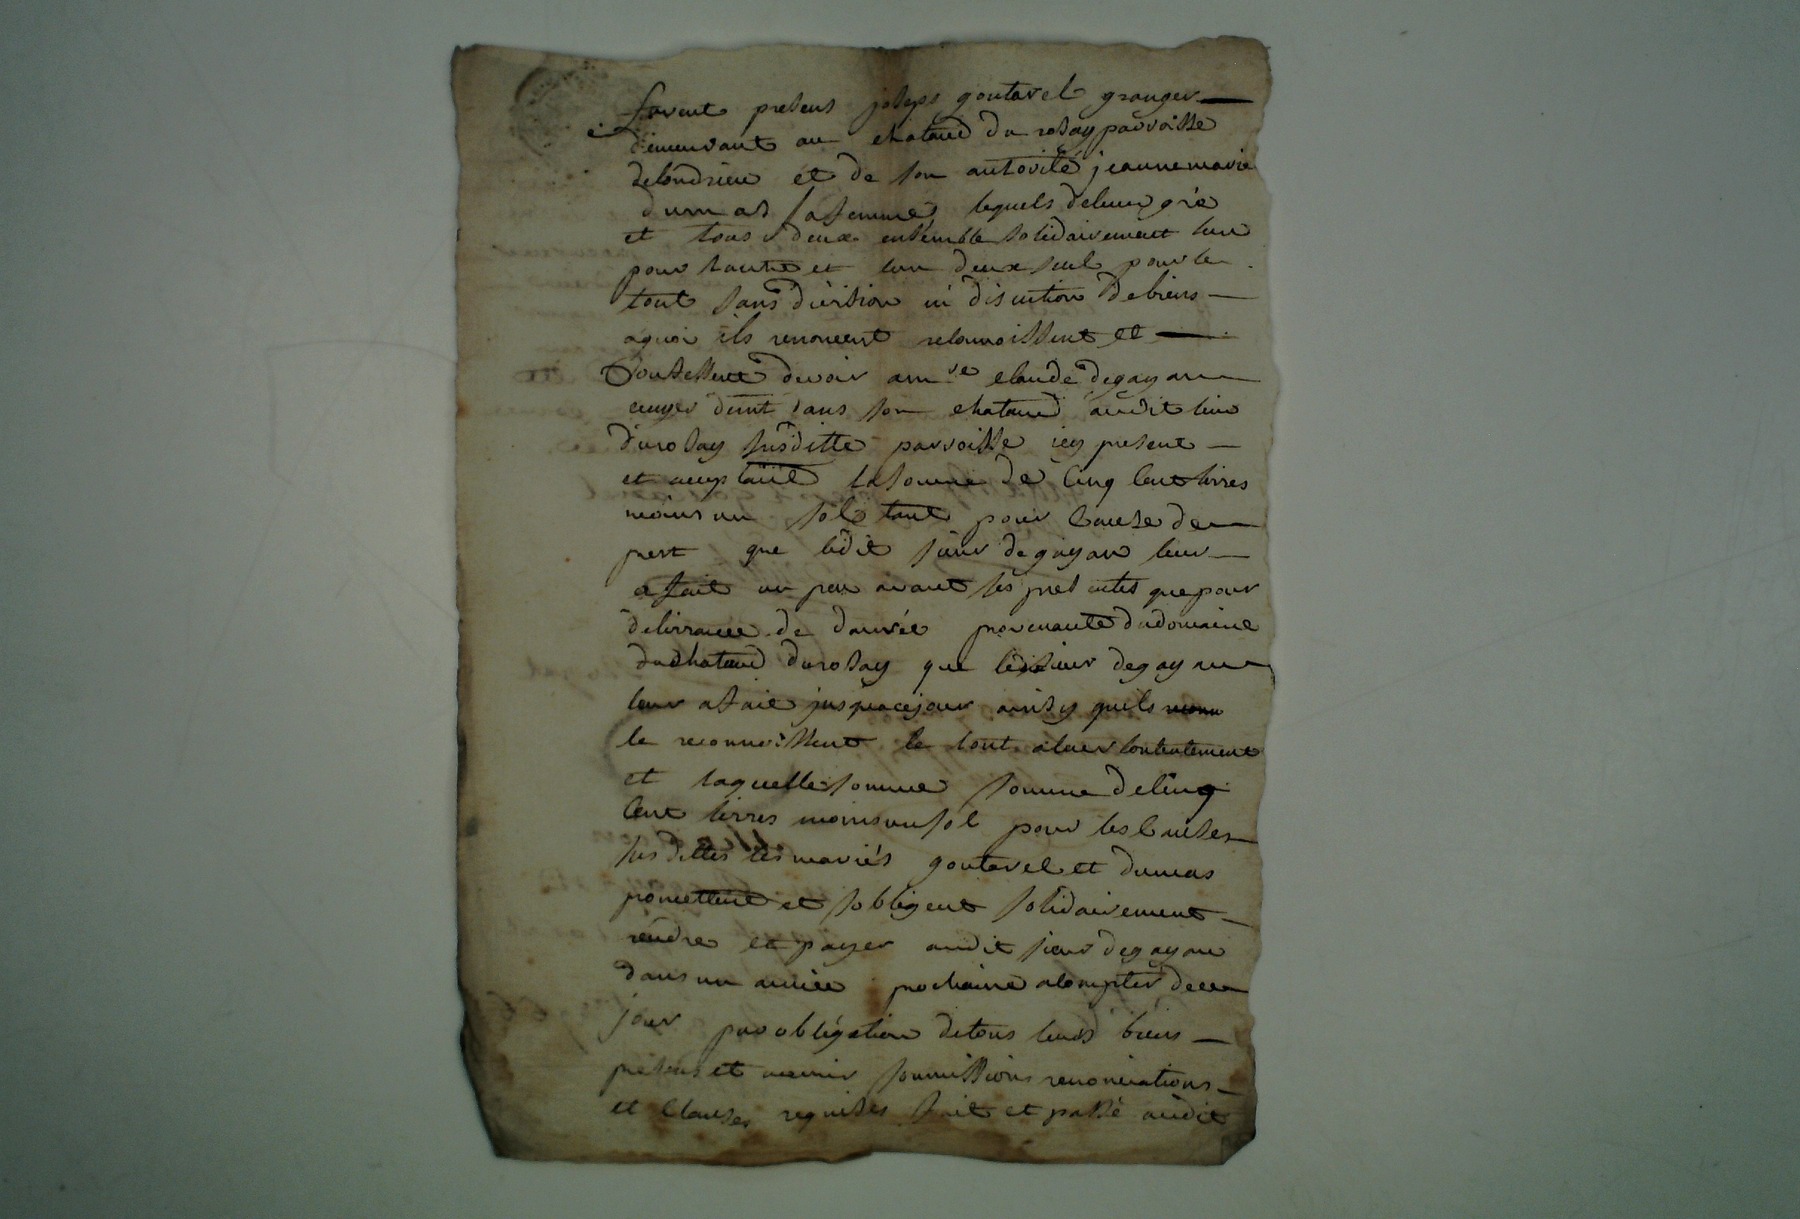 furent presens joseps goutarel granger
demeurant au chataud du rosay parroisse
de Condrieu et de son autorité jeanne marie
dumas sa femme lequels deleur gré
et tous deux ensemble solidairement lun
pour lautre et lun deux seul pour le
tout sans division ni discution de biens
aquoi ils renoncent reconnoissent et
Confessent devoir a mre claude degayan
ecuyer dans son chataud audit lieu
durosay susditte parroisse icy present
et acceptant lasomme de Cinq Cent livres
moins un sol tant pour Cause de
pret que ledit sieur degayan leur
a fait un peu avant les presentes que pour
delivrance de danrée provenante dudomaine
duchataud durosay que ledit sieur degayan
leur afait jusquacejour ainsy quils
le reconnoissent le tout aleur Contentement
et laquelle somme somme deCinq
Cent livres moins un sol pour les Causes
susdittes les mariés goutarel et dumas
promettent et sobligent solidairement
rendre et payer audit sieur degayan
dans un année prochaine aCompter dece
jour par obligation detous leurs biens
presens et avenir soumissions renonciations
et Clauses requises fait et passé audit